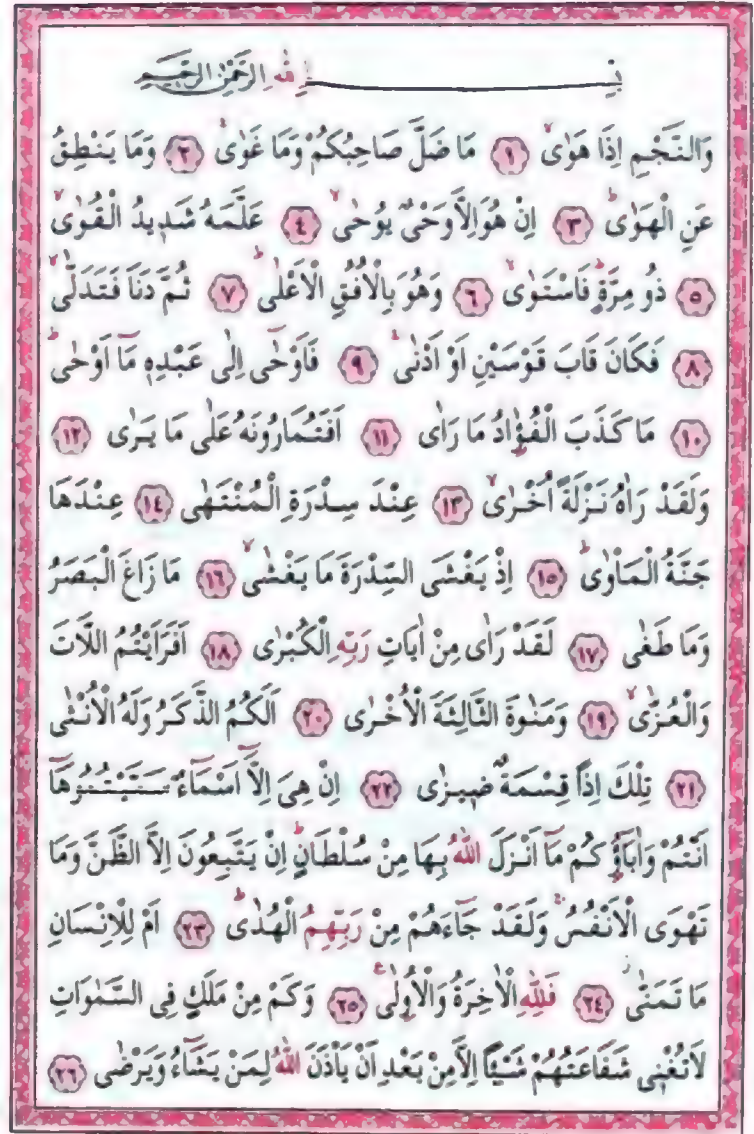 بِسْمِ اللهِ الرَّحْمٰنِ الرَّحِيمِ
وَالنَّجْمِ اِذَا هَوٰىۙ ﴿١﴾ مَا ضَلَّ صَاحِبُكُمْ وَمَا غَوٰىۚ ﴿٢﴾ وَمَا يَنْطِقُ
عَنِ الْهَوٰىۜ ﴿٣﴾ اِنْ هُوَ اِلَّا وَحْيٌ يُوحٰىۙ ﴿٤﴾ عَلَّمَهُ شَدِيدُ الْقُوٰىۙ
﴿٥﴾ ذُو مِرَّةٍۜ فَاسْتَوٰىۙ ﴿٦﴾ وَهُوَ بِالْاُفُقِ الْاَعْلٰىۜ ﴿٧﴾ ثُمَّ دَنَا فَتَدَلّٰىۙ
﴿٨﴾ فَكَانَ قَابَ قَوْسَيْنِ اَوْ اَدْنٰىۚ ﴿٩﴾ فَاَوْحٰٓى اِلٰى عَبْدِهِ مَٓا اَوْحٰىۜ
﴿١٠﴾ مَا كَذَبَ الْفُؤٰادُ مَا رَاٰى ﴿١١﴾ اَفَتُمَارُونَهُ عَلٰى مَا يَرٰى ﴿١٢﴾
وَلَقَدْ رَاٰهُ نَزْلَةً اُخْرٰىۙ ﴿١٣﴾ عِنْدَ سِدْرَةِ الْمُنْتَهٰى ﴿١٤﴾ عِنْدَهَا
جَنَّةُ الْمَاْوٰىۜ ﴿١٥﴾ اِذْ يَغْشَى السِّدْرَةَ مَا يَغْشٰىۙ ﴿١٦﴾ مَا زَاغَ الْبَصَرُ
وَمَا طَغٰى ﴿١٧﴾ لَقَدْ رَاٰى مِنْ اٰيَاتِ رَبِّهِ الْكُبْرٰى ﴿١٨﴾ اَفَرَاَيْتُمُ اللَّاتَ
وَالْعُزّٰىۙ ﴿١٩﴾ وَمَنٰوةَ الثَّالِثَةَ الْاُخْرٰى ﴿٢٠﴾ اَلَكُمُ الذَّكَرُ وَلَهُ الْاُنْثٰى
﴿٢١﴾ تِلْكَ اِذًا قِسْمَةٌ ضِيزٰى ﴿٢٢﴾ اِنْ هِيَ اِلَّٓا اَسْمَٓاءٌ سَمَّيْتُمُوهَٓا
اَنْتُمْ وَاٰبَٓاؤُكُمْ مَٓا اَنْزَلَ اللهُ بِهَا مِنْ سُلْطَانٍۜ اِنْ يَتَّبِعُونَ اِلَّا الظَّنَّ وَمَا
تَهْوَى الْاَنْفُسُۚ وَلَقَدْ جَٓاءَهُمْ مِنْ رَبِّهِمُ الْهُدٰىۜ ﴿٢٣﴾ اَمْ لِلْاِنْسَانِ
مَا تَمَنّٰىۘ ﴿٢٤﴾ فَلِلّٰهِ الْاٰخِرَةُ وَالْاُو۫لٰى۟ ﴿٢٥﴾ وَكَمْ مِنْ مَلَكٍ فِي السَّمٰوَاتِ
لَا تُغْنِي شَفَاعَتُهُمْ شَيْـًٔا اِلَّا مِنْ بَعْدِ اَنْ يَاْذَنَ اللهُ لِمَنْ يَشَٓاءُ وَيَرْضٰى ﴿٢٦﴾